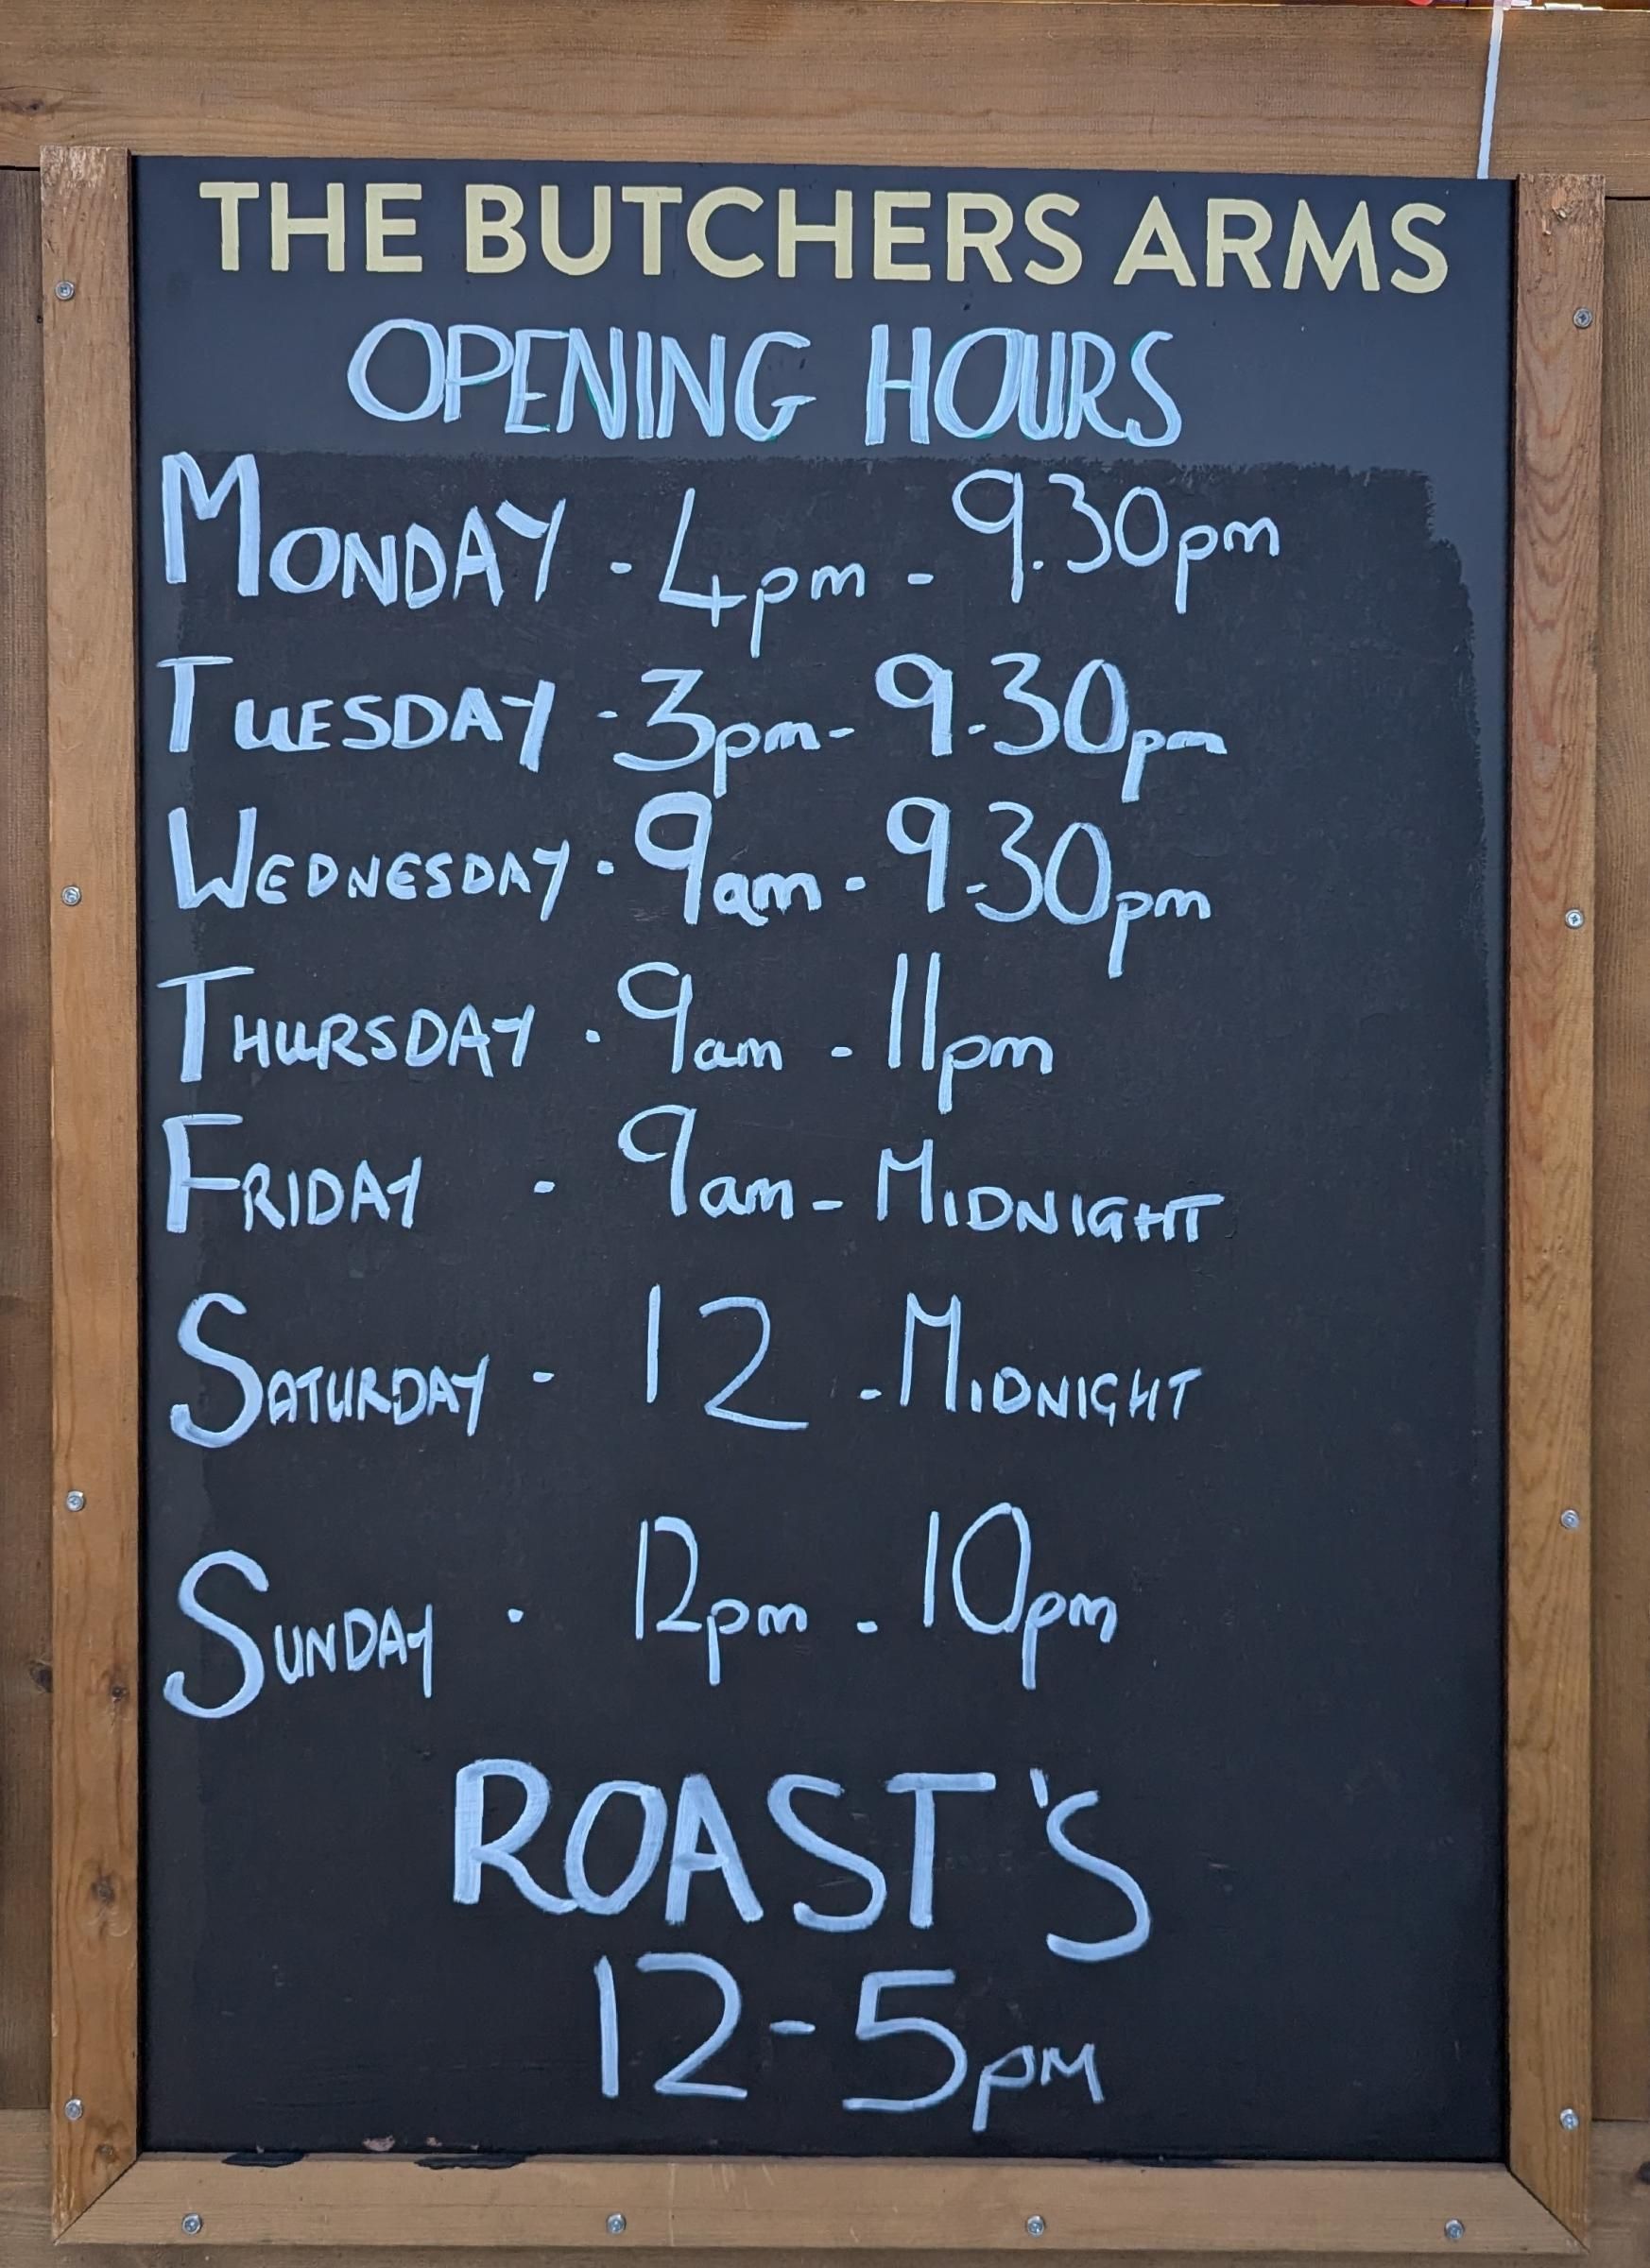 THE BUTCHERS ARMS
OPENING HOURS
MONDAY - 4pm - 9.30pm
TUESDAY - 3pm - 9.30pm
WEDNESDAY - 9am - 9.30pm
THURSDAY - 9am - 11pm
FRIDAY - 9am - MIDNIGHT
SATURDAY - 12 - MIDNIGHT
SUNDAY - 12pm - 10pm
ROAST'S
12-5pm